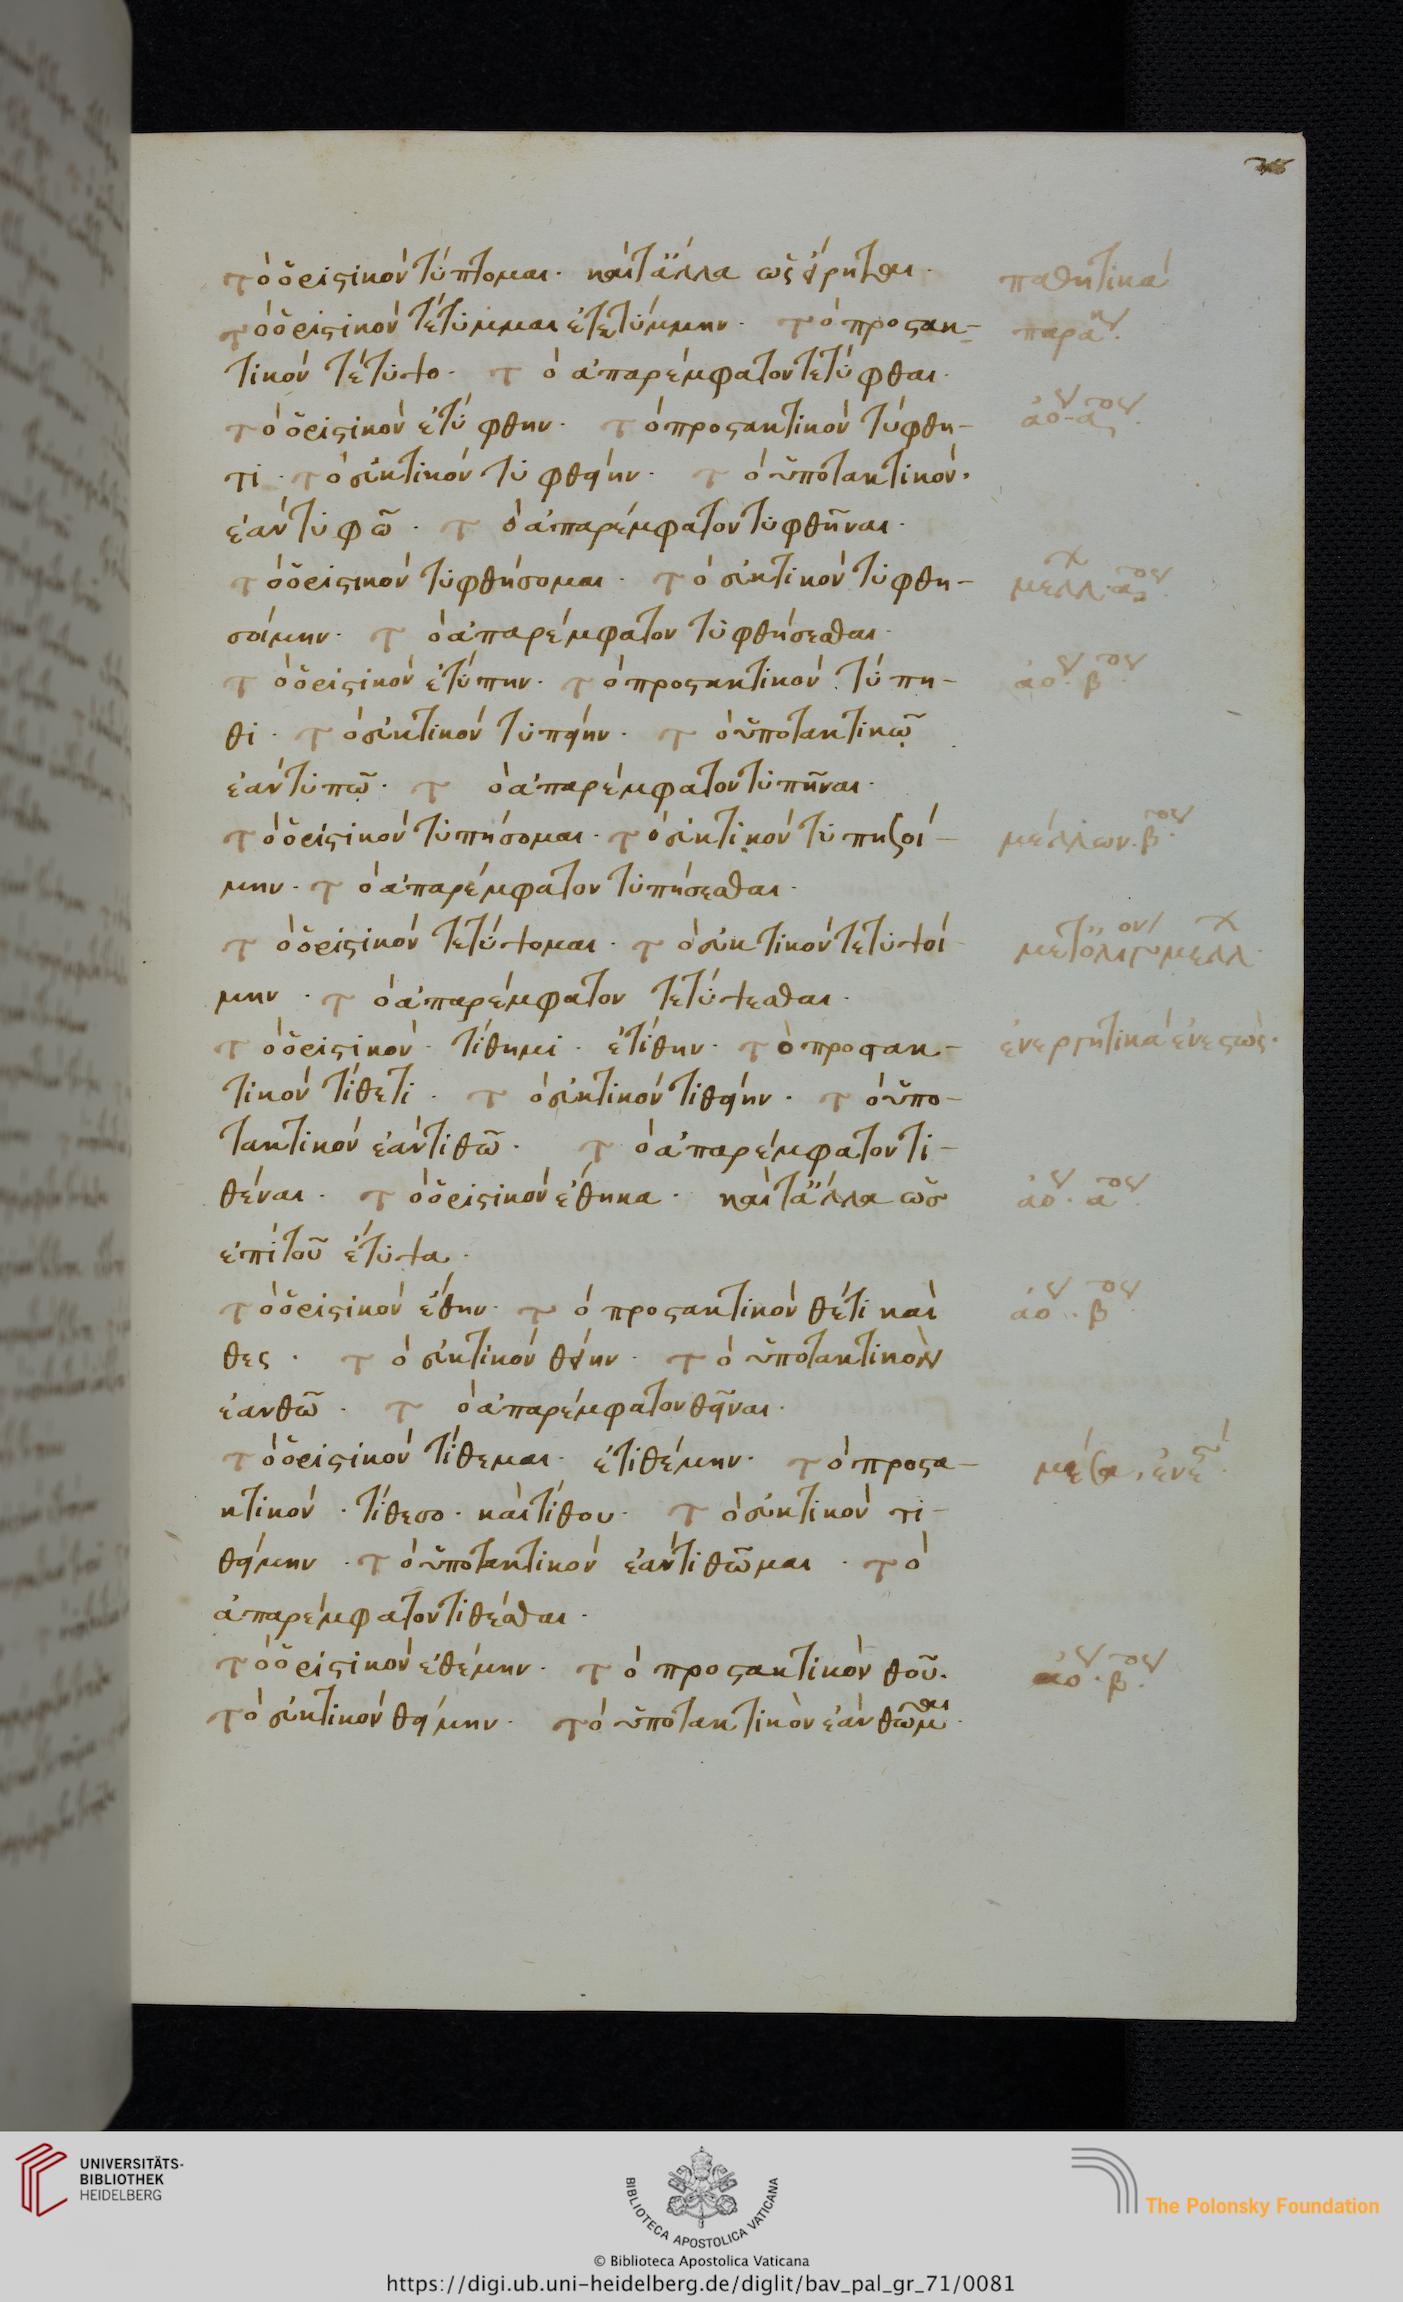 τὸ ὁριστικὸν τύπτομαι· καὶ τἄλλα ὡς εἴρηται· παθητικά
τὸ ὁριστικὸν τέτυμμαι ἐτετύμμην· τὸ προστακ-
τικὸν τέτυψο· τὸ ἀπαρέμφατον τετύφθαι·
τὸ ὁριστικὸν ἐτύφθην· τὸ προστακτικὸν τύφθη- ἀο. α
τι· τὸ εὐκτικὸν τυφθείην· τὸ ὑποτακτικὸν·
ἐὰν τυφῶ· τὸ ἀπαρέμφατον τυφθῆναι·
τὸ ὁριστικὸν τυφθήσομαι· τὸ εὐκτικὸν τυφθη- μελλ. α
σοίμην· τὸ ἀπαρέμφατον τυφθήσεσθαι·
τὸ ὁριστικὸν ἐτύπην· τὸ προστακτικὸν τύπη- ἀο. β
θι· τὸ εὐκτικὸν τυπείην· τὸ ὑποτακτικῶ
ἐὰν τυπῶ· τὸ ἀπαρέμφατον τυπῆναι·
τὸ ὁριστικὸν τυπήσομαι· τὸ εὐκτικὸν τυπησοί- μέλλων. β
μην· τὸ ἀπαρέμφατον τυπήσεσθαι·
τὸ ὁριστικὸν τετύψομαι· τὸ εὐκτικὸν τετυψοί μετ' ὀλίγον μελλ
μην· τὸ ἀπαρέμφατον τετύψεσθαι·
τὸ ὁριστικὸν· τίθημι· ἐτίθην· τὸ προστακ- ἐνεργητικὰ ἐνεστώς·
τικὸν τίθετι· τὸ εὐκτικὸν τιθείην· τὸ ὑπο-
τακτικὸν ἐὰν τιθῶ· τὸ ἀπαρέμφατον τι-
θέναι· τὸ ὁριστικὸν ἔθηκα· καὶ τἄλλα ὡς ἀο. α
ἐπὶ τοῦ ἔτυψα·
τὸ ὁριστικὸν ἔθην· τὸ προστακτικὸν θέτι καὶ ἀο. β
θες· τὸ εὐκτικὸν θείην· τὸ ὑποτακτικὸν
ἐὰν θῶ· τὸ ἀπαρέμφατον θεῖναι·
τὸ ὁριστικὸν τίθεμαι· ἐτιθέμην· τὸ προστα- μέσα, ἐνεστ
κτικὸν· τίθεσο· καὶ τίθου· τὸ εὐκτικὸν τι-
θείμην· τὸ ὑποτακτικὸν ἐὰν τιθῶμαι· τὸ
ἀπαρέμφατον τίθεσθαι·
τὸ ὁριστικὸν ἐθέμην· τὸ προστακτικὸν θοῦ. ἀο. β
τὸ εὐκτικὸν θείμην· τὸ ὑποτακτικὸν ἐὰν θῶμαι·
UNIVERSITÄTS-
BIBLIOTHEK
HEIDELBERG
BIBLIOTECA APOSTOLICA VATICANA
The Polonsky Foundation
© Biblioteca Apostolica Vaticana
https://digi.ub.uni-heidelberg.de/diglit/bav_pal_gr_71/0081